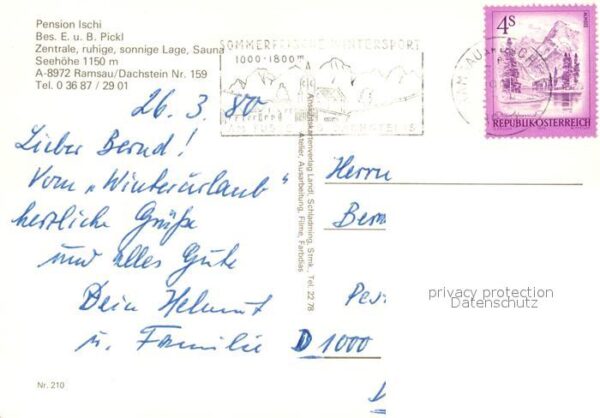 Pension Ischi
Bes. E. u. B. Pickl
Zentrale, ruhige, sonnige Lage, Sauna
Seehöhe 1150 m
A-8972 Ramsau/Dachstein Nr. 159
Tel. 0 36 87 / 29 01
SOMMERFRISCHE WINTERSPORT
1000-1800m
4S
REPUBLIK ÖSTERREICH
26.3.80
Lieber Bernd!
Vom „Winterurlaub"
herzliche Grüße
und alles Gute
Dein Helmut
u. Familie
Ansichtskartenverlag Landl, Schladming, Stmk., Tel. 22 78
Atelier, Ausarbeitung, Filme, Farbdias
Herrn
Bern
D 1000
privacy protection
Datenschutz
Nr. 210